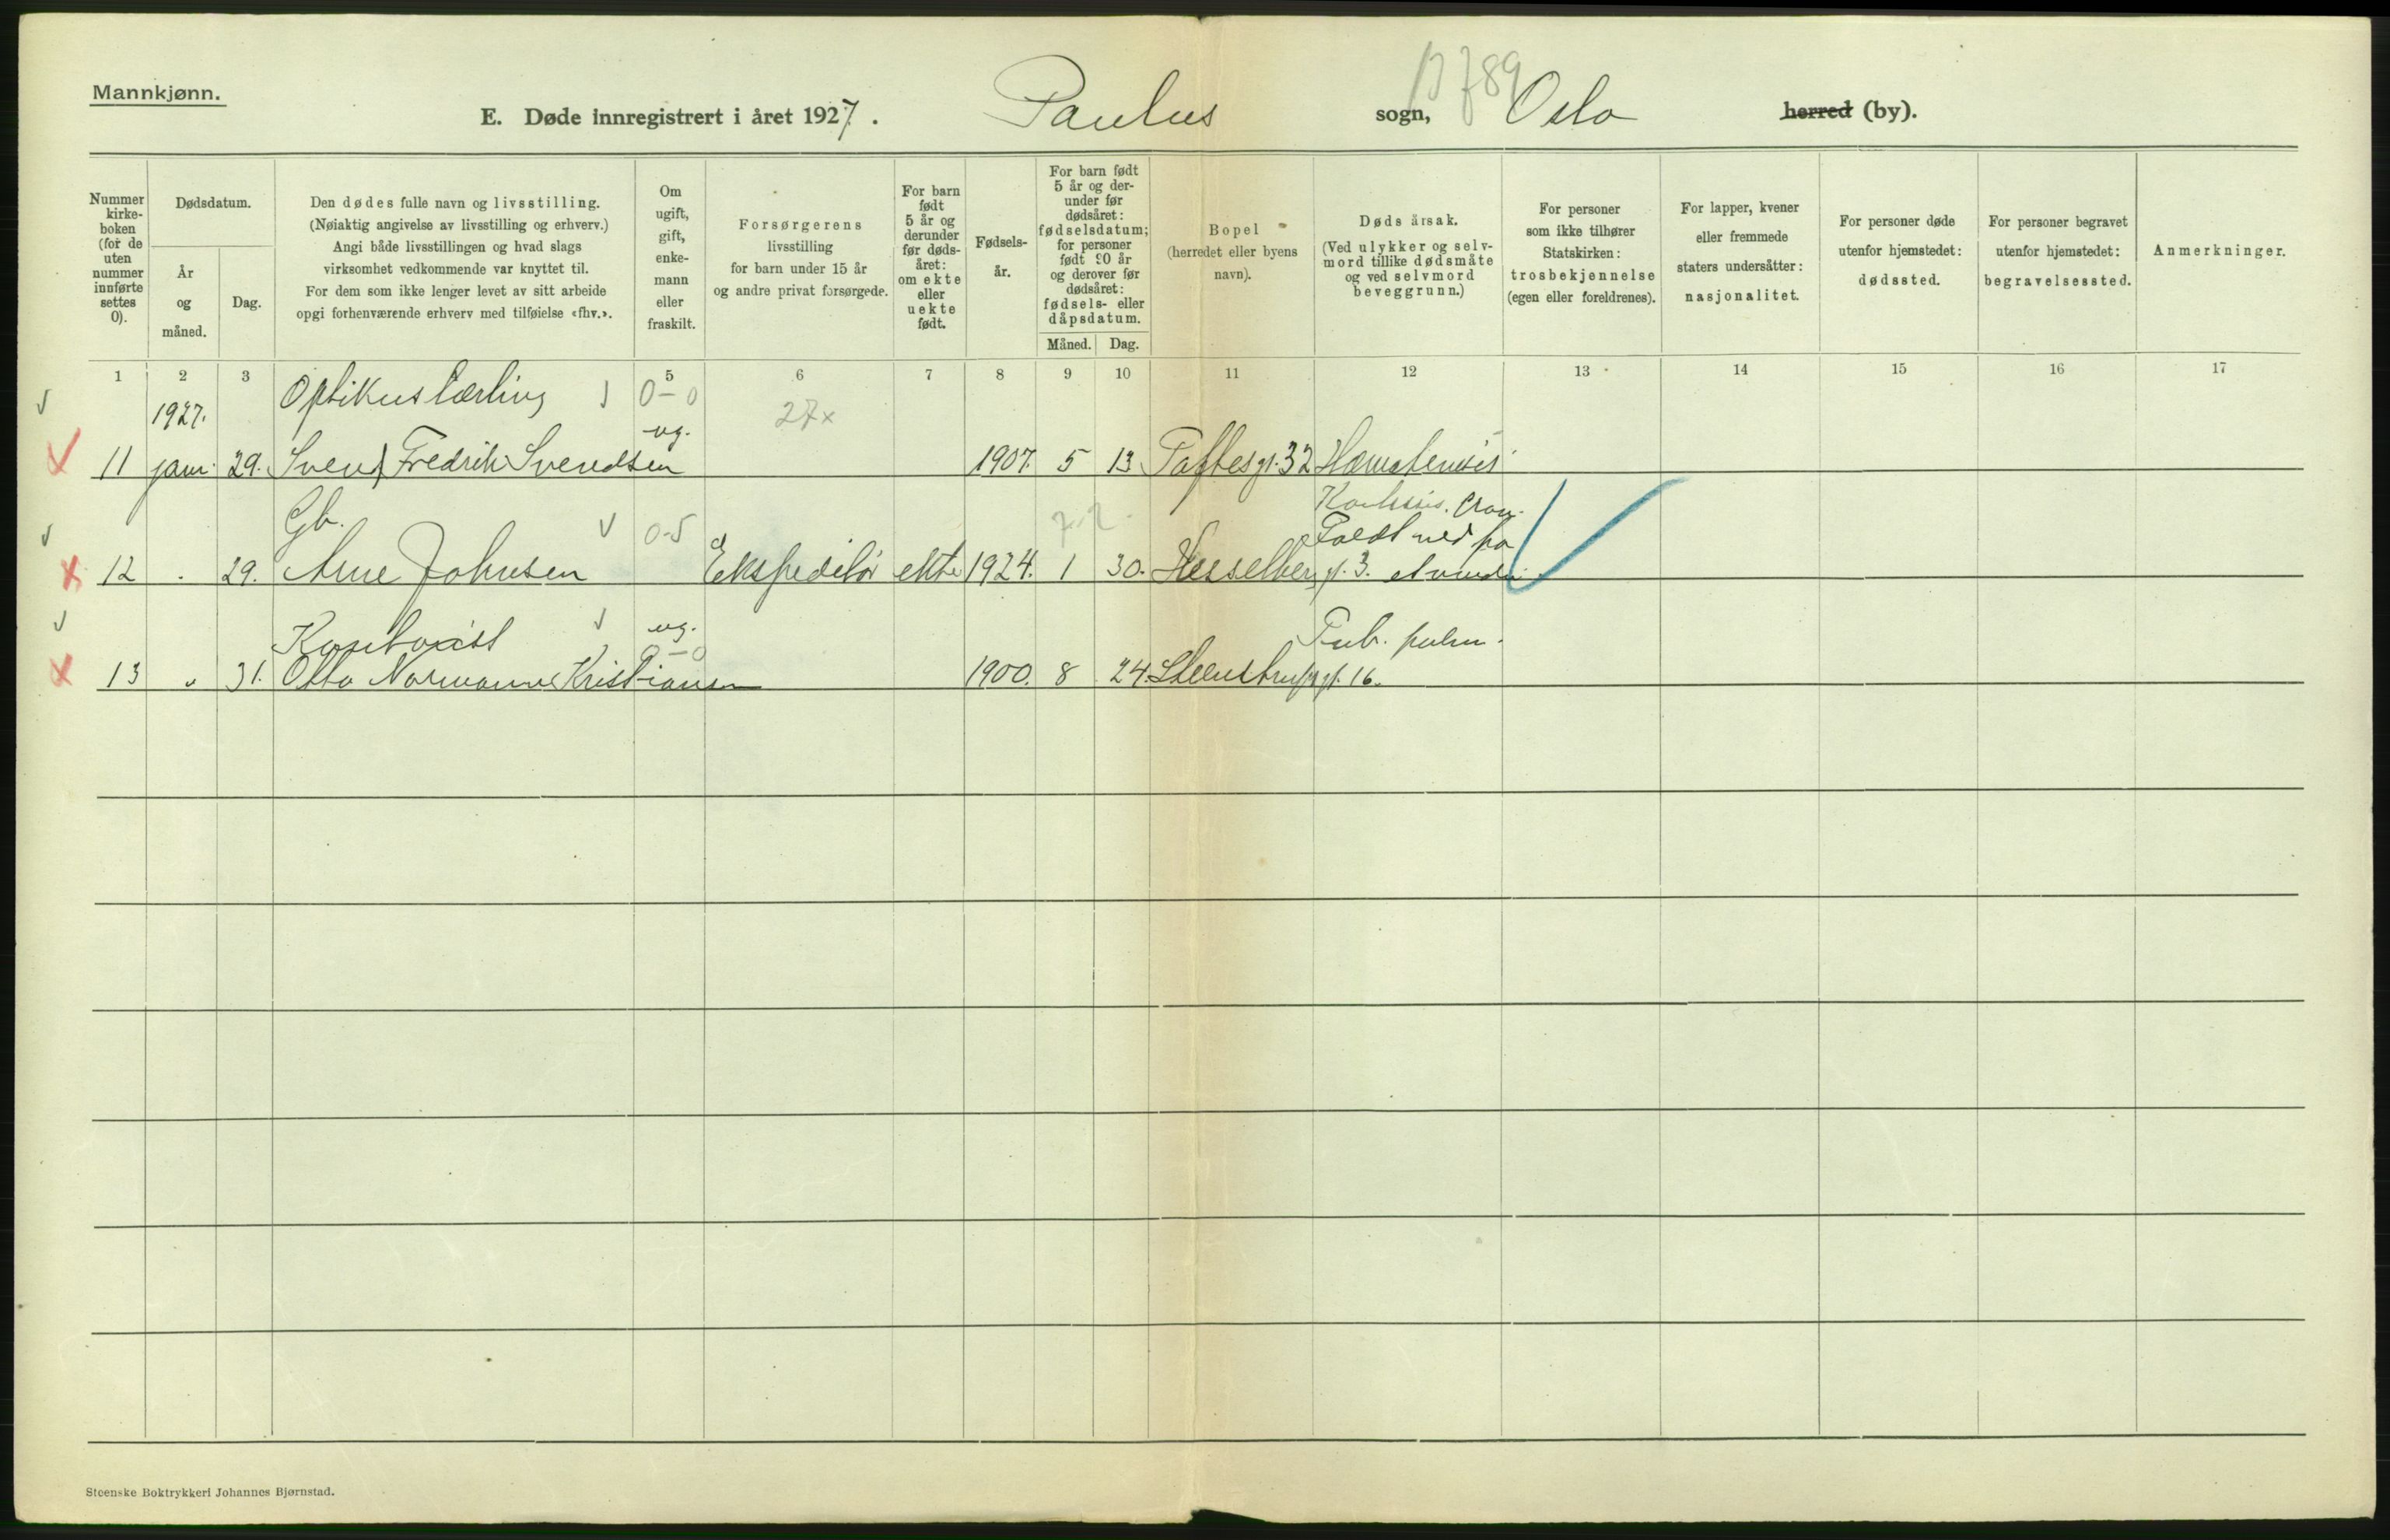 Mannkjønn.
E. Døde innregistrert i året 1927. Paulus sogn, Oslo herred (by).
Nummer kirke-boken (for de uten nummer innførte settes 0).
Dødsdatum.
År og måned.
Dag.
Den dødes fulle navn og livsstilling.
(Nøiaktig angivelse av livsstilling og erhverv.)
Angi både livsstillingen og hvad slags
virksomhet vedkommende var knyttet til.
For dem som ikke lenger levet av sitt arbeide
opgi forhenværende erhverv med tilføielse «fhv.».
Om ugift, gift, enke-mann eller fraskilt.
Forsørgerens
livsstilling
for barn under 15 år
og andre privat forsørgede.
For barn født 5 år og derunder før døds-året: om ekte eller uekte født.
Fødsels-år.
For barn født 5 år og der-under før dødsåret: fødselsdatum; for personer født 90 år og derover før dødsåret: fødsels- eller dåpsdatum.
Måned. Dag.
Bopel
(herredet eller byens
navn).
Døds årsak.
(Ved ulykker og selv-
mord tillike dødsmåte
og ved selvmord
beveggrunn.)
For personer
som ikke tilhører
Statskirken:
trosbekjennelse
(egen eller foreldrenes).
For lapper, kvener
eller fremmede
staters undersåtter:
nasjonalitet.
For personer døde
utenfor hjemstedet:
dødssted.
For personer begravet
utenfor hjemstedet:
begravelsessted.
Anmerkninger.
1 2 3 5 6 7 8 9 10 11 12 13 14 15 16 17
Optikuslærling 0-0
1927. ug. 27x
11 jan. 29. Svend Fredrik Svendsen 1907. 5 13 Toftesgt. 32
Gb. 0-5 Faldt ned på
12 29. Arne Johnsen Ekspeditør ekte 1924. 1 30. Hesselbergs gt. 3.
Kontorist ug. 0-0 Tub. pulm.
13 " 31. Otto Normann Kristiansen 1900. 8 24. Steenstrups gt. 16.
Steenske Boktrykkeri Johannes Bjørnstad.